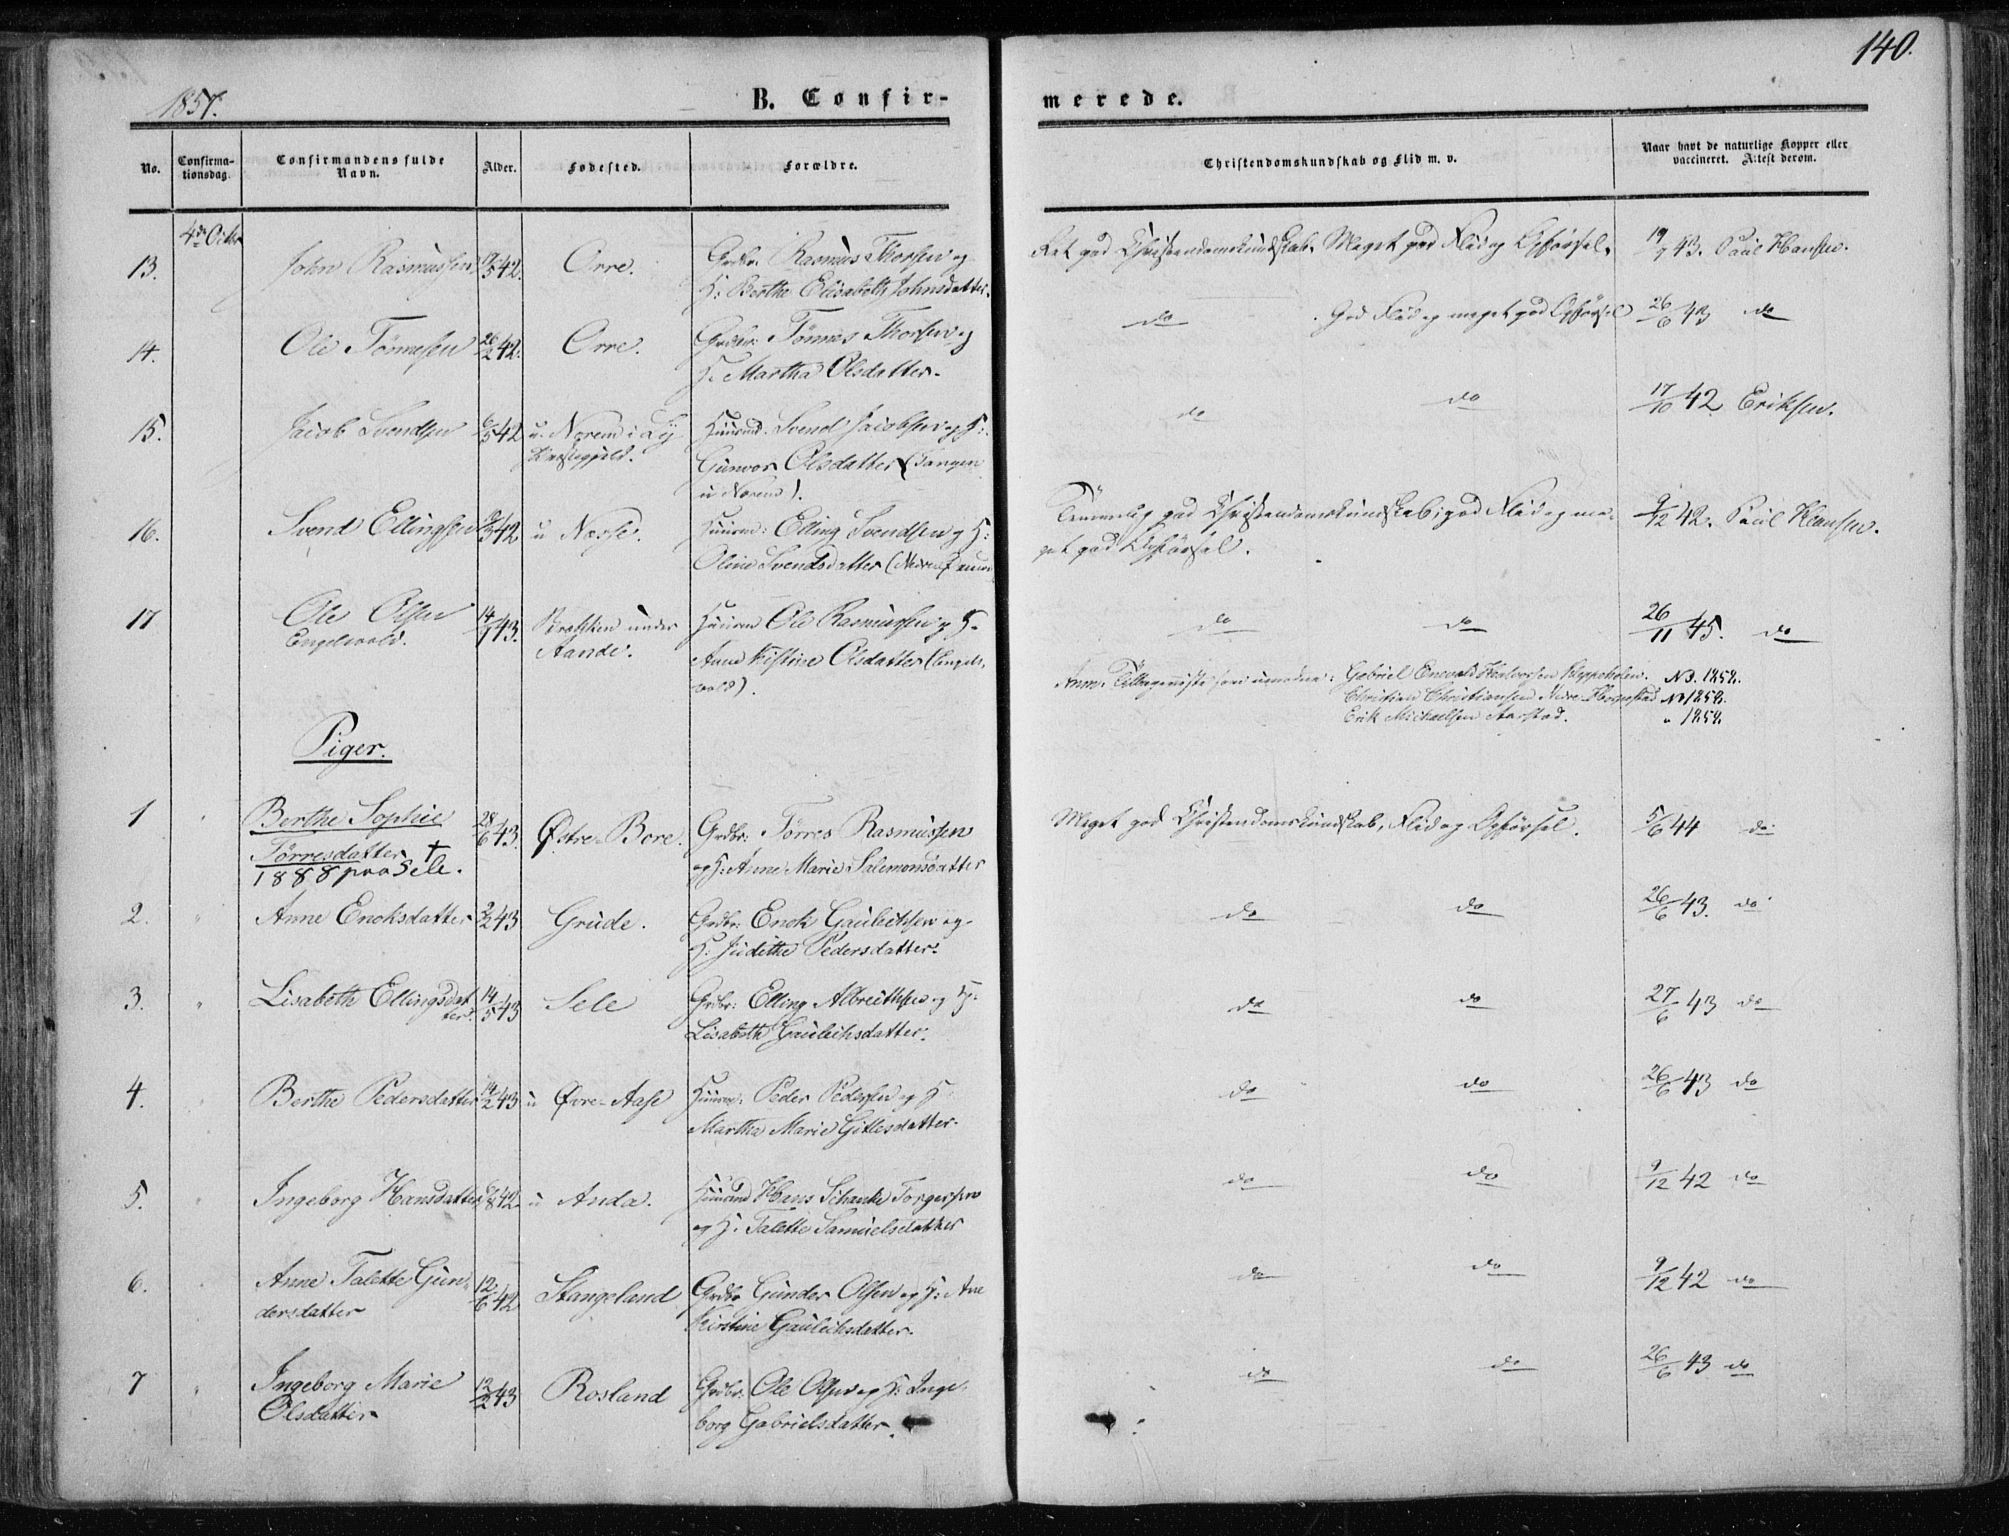 140.
1857.
B. Confir-
merede.
No.
Confirma-
tionsdag.
Confirmandens fulde
Navn.
Alder.
Fødested.
Forældre.
Christendomskundskab og Flid m. v.
Naar havt de naturlige Kopper eller
vaccineret. Attest derom.
4de Octbr
13. John Rasmussen 5 42. Orre. Grdbr. Rasmus Thorsen og
H: Berthe Elisabeth Johnsdatter.
Ret god Christendomskundskab. Meget god Flid og Opførsel. 19/7 43. Paul Hansen.
14. Ole Tønnesen 26/2 42. Orre. Grdbr. Tønnes Thorsen og
H. Martha Olsdatter.
do . God Flid og meget god Opførsel 26/6 43 do
15. Jacob Svendsen 5 42 u. Norem i Lÿ
Præstegjeld.
Huusmd. Svend Jacobsen og H:
Gunvor Olsdatter (Tangen
u Norem).
do do 17/10 42 Eriksen.
16. Svend Ellingsen 3 42 u Næsse. Huusm: Elling Svendsen og H:
Oline Svendsdatter
Temmelig god Christendomskundskab, god Flid og me-
get god Opførsel.
9/12 42. Paul Hansen.
17 Ole Olsen
Engelvold.
14/1 43. under
Aande.
Huusm Ole Rasmussen og H.
Anne Kistine Olsdatter (Engels-
vold).
do do 26/11 45. do
Anm. som umodne: Gabriel Enevold Halvorsen Kleppeholen. N3. 1858.
Christian Christiansen Nedre-Haugestad N1 1858.
Erik Michaelsen Aarstad. " 1858.
Piger.
1 Berthe Sophie
Tørresdatter †
1888 paa Sele.
28/6 43. Østre-Bore. Grdbr: Tørres Rasmussen
og H: Anne Marie Salemonsdatter
Meget god Christendomskundskab, Flid og Opførsel. 5/6 44 do
2. " Anne Enoksdatter 2/2 43 Grude. Grdbr: Enok Gauteksen og
H: Judithe Pedersdatter.
do do 26/6 43. do
3. " Lisabeth Ellingsdat
ter.
14/5 43 Sele Grdbr: Elling Albreithsen og H:
Lisabeth Gauteksdatter.
do do 27/6 43 do
4. Berthe Pedersdatter 14/2 43 u Øvre-Aase Huusm: Peder Pedersen og H
Martha Marie Gitlesdatter.
do do 26/6 43 do
5. " Ingeborg Hansdatter 6/8 42. u Anda. Huusmd Hans Schanke Torgersen
og H. Talette Samuelsdatter
do do 9/12 42 do
6. " Anne Talette Gun-
dersdatter
12/6 42 Stangeland Grdbr Gunder Olsen og H: Ane
Kirstine Gauteksdatter.
do do 9/12 42 do
7 " Ingeborg Marie
Olsdatter
12/2 43 Rosland Grdbr: Ole Olsen og H: Inge-
borg Gabrielsdatter.
do do 26/6 43 do